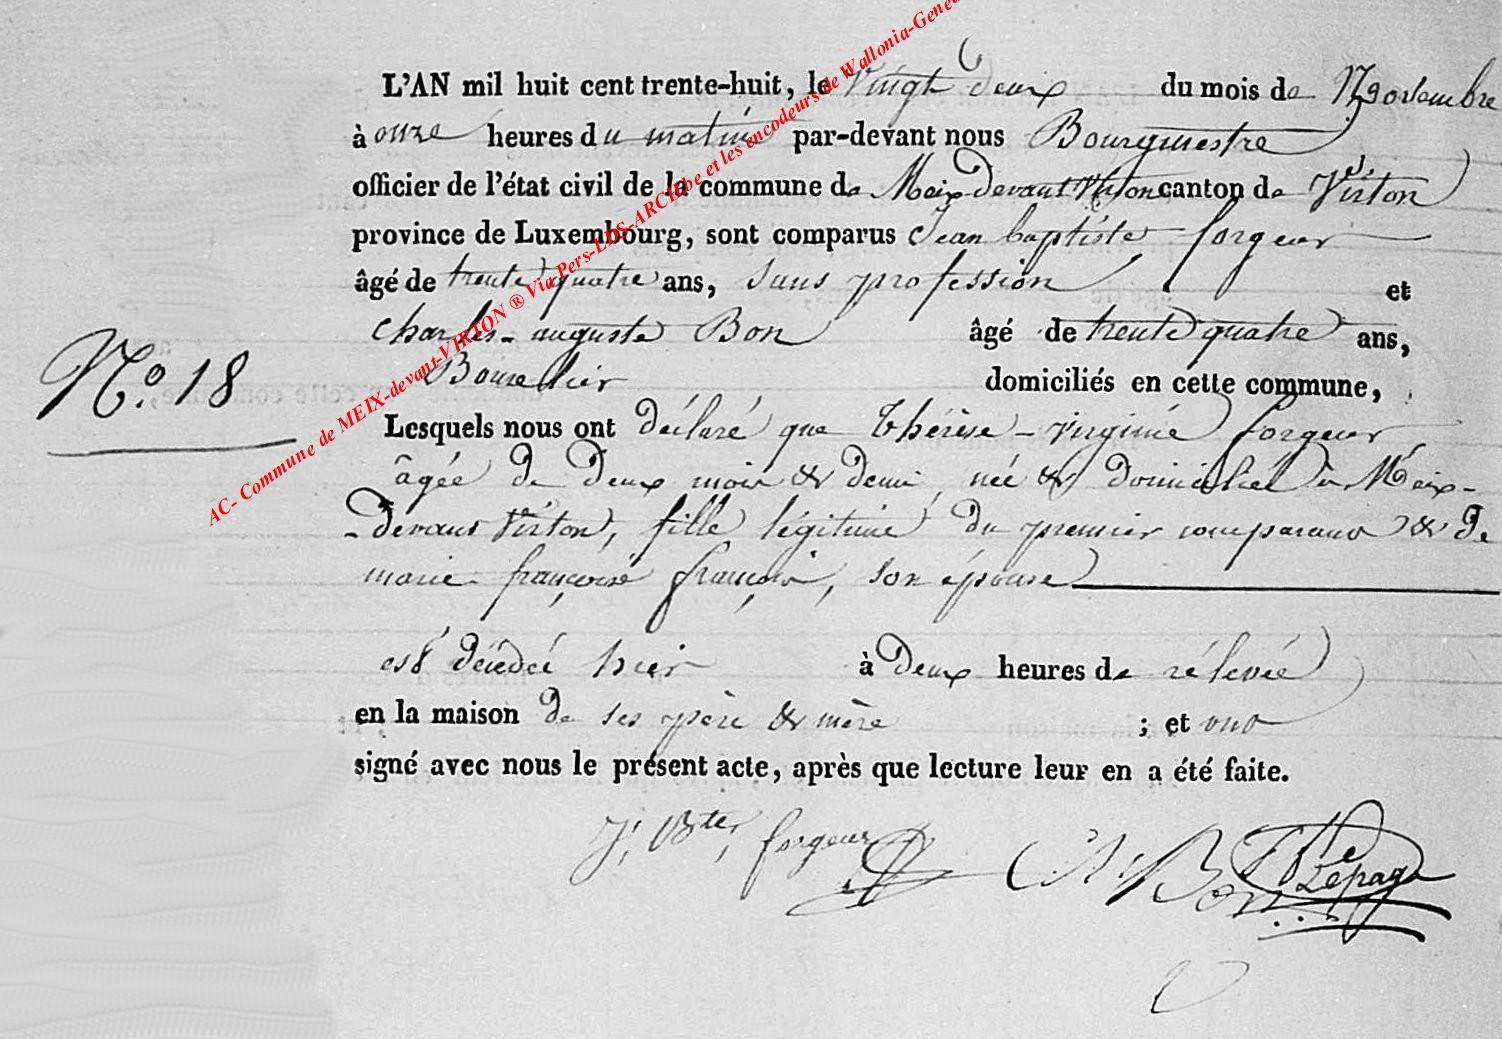 L'AN mil huit cent trente-huit, le vingt deux du mois de Novembre
à onze heures du matin par-devant nous Bourgmestre
officier de l'état civil de la commune de Meix devant Virton canton de Virton
province de Luxembourg, sont comparus Jean baptiste forgeur
âgé de trente quatre ans, sans profession et
charles-auguste Bon âgé de trente quatre ans,
Bourellier domiciliés en cette commune,
N.o 18
Lesquels nous ont déclaré que thérèse-virginie forgeur
âgée de deux mois & demi, née & domiciliée à Meix-
-devant Virton, fille légitime du premier comparant & de
marie françoise françois, son épouse
est décédée hier à deux heures de rélevée
en la maison de ses père & mère ; et ont
signé avec nous le présent acte, après que lecture leur en a été faite.
J. Bte, forgeur Ch Bon Lepage
AC- Commune de MEIX-devant-VIRTON ® Via Pers-LDS-ARCHbe et les encodeurs de Wallonia-Genea